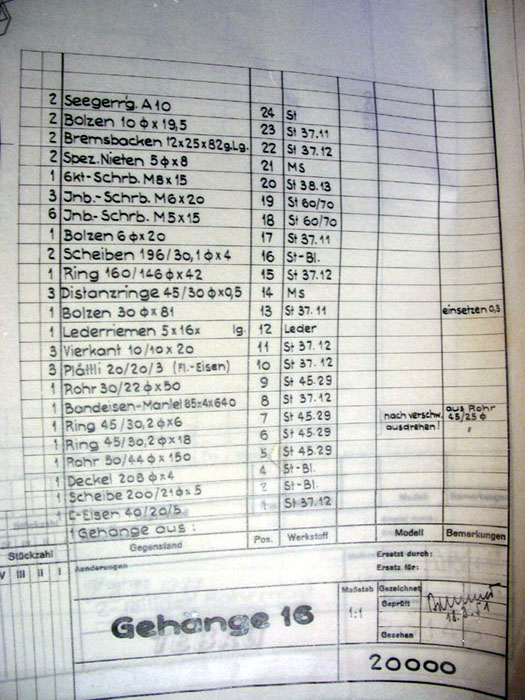 2 Seegerr'g. A10 24 St
2 Bolzen 10 ϕ x 19,5 23 St 37.11
2 Bremsbacken 12x25x82g.Lg. 22 St 37.12
2 Spez. Nieten 5ϕx8 21 MS
1 6kt-Schrb. M8x15 20 St 38.13
3 Jnb.-Schrb. M6x20 19 St 60/70
6 Jnb.-Schrb. M5x15 18 St 60/70
1 Bolzen 6 ϕx20 17 St 37.11
2 Scheiben 196/30,1ϕx4 16 St-Bl.
1 Ring 160/146ϕx42 15 St 37.12
3 Distanzringe 45/30ϕx0,5 14 MS
1 Bolzen 30ϕx81 13 St 37.11 einsetzen 0,3
1 Lederriemen 5x16x lg. 12 Leder
3 Vierkant 10/10x20 11 St 37.12
3 Plättli 20/20/3 (Fl.-Eisen) 10 St 37.12
1 Rohr 30/22ϕx50 9 St 45.29
1 Bandeisen-Mantel 85x4x640 8 St 37.12
1 Ring 45/30,2ϕx6 7 St 45.29 nach verschw. ausdrehen! aus Rohr 45/25ϕ
1 Ring 45/30,2ϕx18 6 St 45.29 "
1 Rohr 50/44ϕx150 5 St 45.29
1 Deckel 208ϕx4 4 St-Bl.
1 Scheibe 200/21ϕx5 2 St-Bl.
1 C-Eisen 40/20/5 1 St 37.12
1 Gehänge aus:
Stückzahl Gegenstand Pos. Werkstoff Modell Bemerkungen
V III II I Änderungen Ersetzt durch:
Ersatz für:
Maßstab Gezeichnet
Gehänge 16 1:1 Geprüft
Gesehen
20000